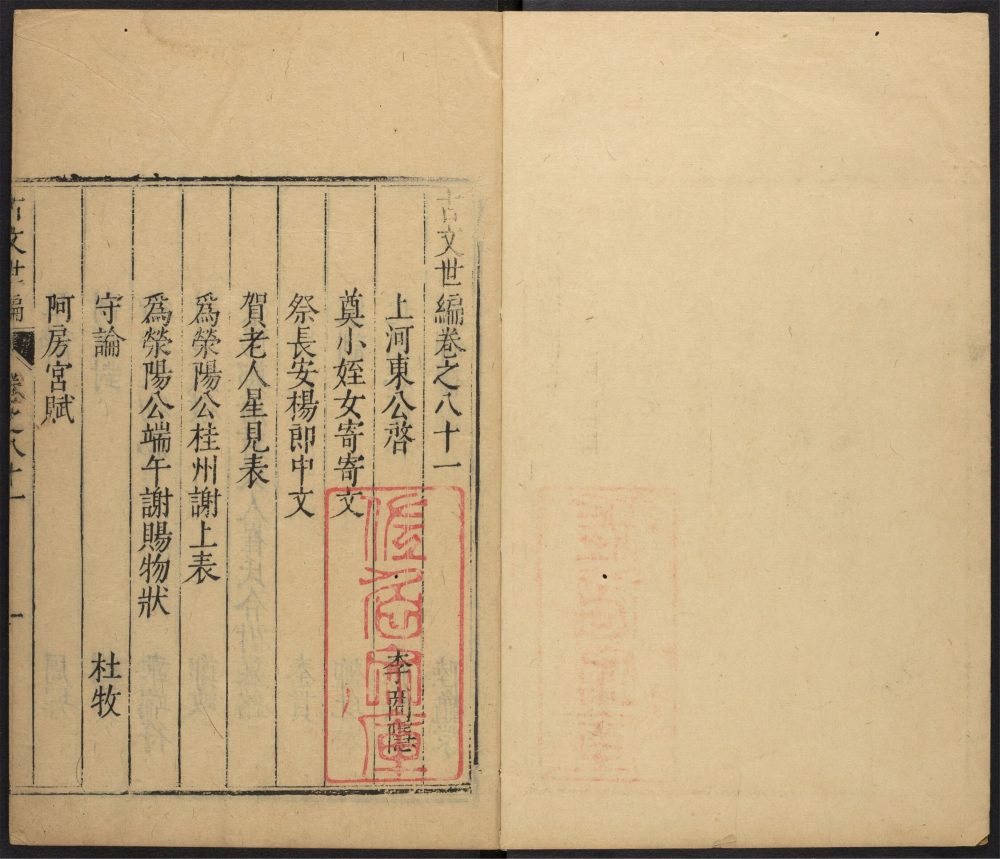 古文世編卷之八十一
上河東公啓 李商隱
奠小姪女寄寄文
祭長安楊郎中文
賀老人星見表
爲滎陽公桂州謝上表
爲滎陽公端午謝賜物狀
守論 杜牧
阿房宮賦
古文世編 卷之八十一 一